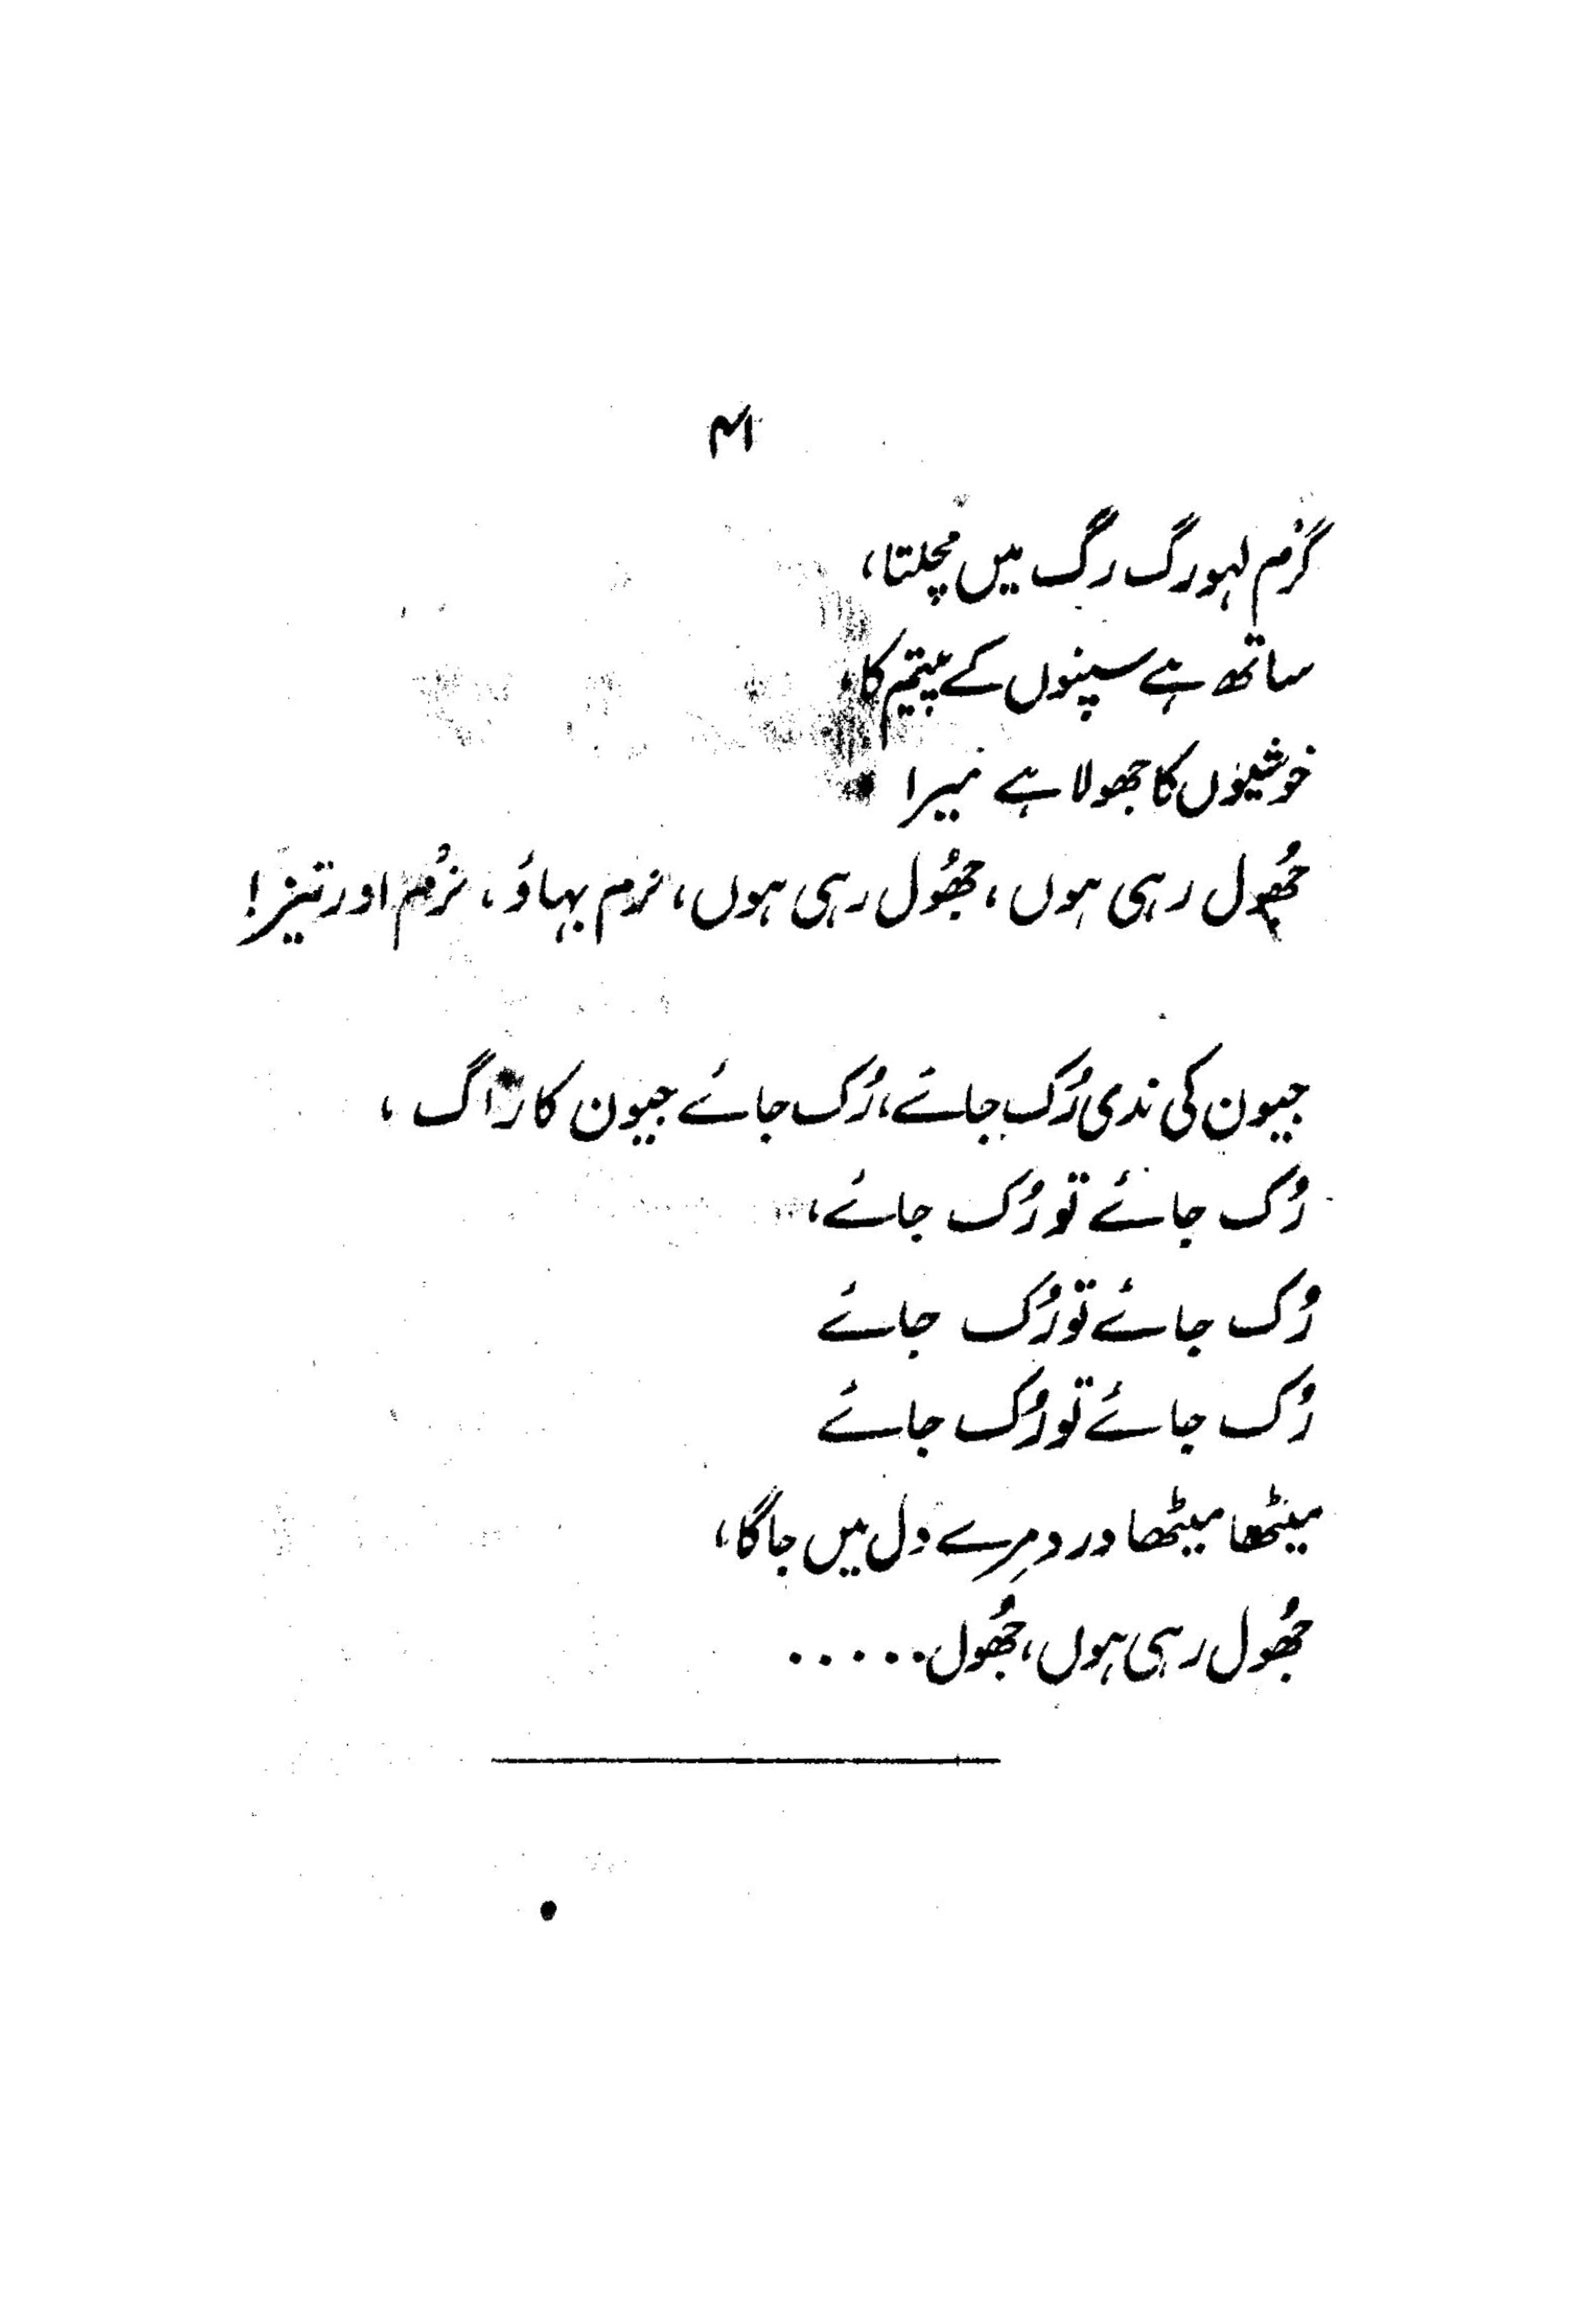 ۴۱
گرم لہو رگ رگ میں مچلتا،
ساتھ ہے سپنوں کے پیتم کا،
خوشیوں کا جھولا ہے میرا
جُھول رہی ہوں، جُھول رہی ہوں، نرم بہاؤ، نرم اور تیز!
جیون کی ندی رُک جائے، رُک جائے جیون کا راگ،
رُک جائے تو رُک جائے،
رُک جائے تو رُک جائے
رُک جائے تو رُک جائے
میٹھا میٹھا درد مِرے دل میں جاگا،
جُھول رہی ہوں، جُھول.....